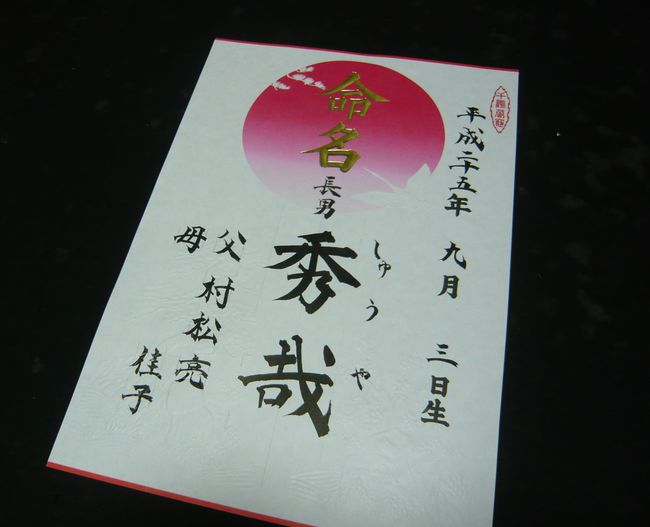 平成二十五年 九月 三日生
命名
長男
しゅうや
秀哉
父 村松亮
母 佳子